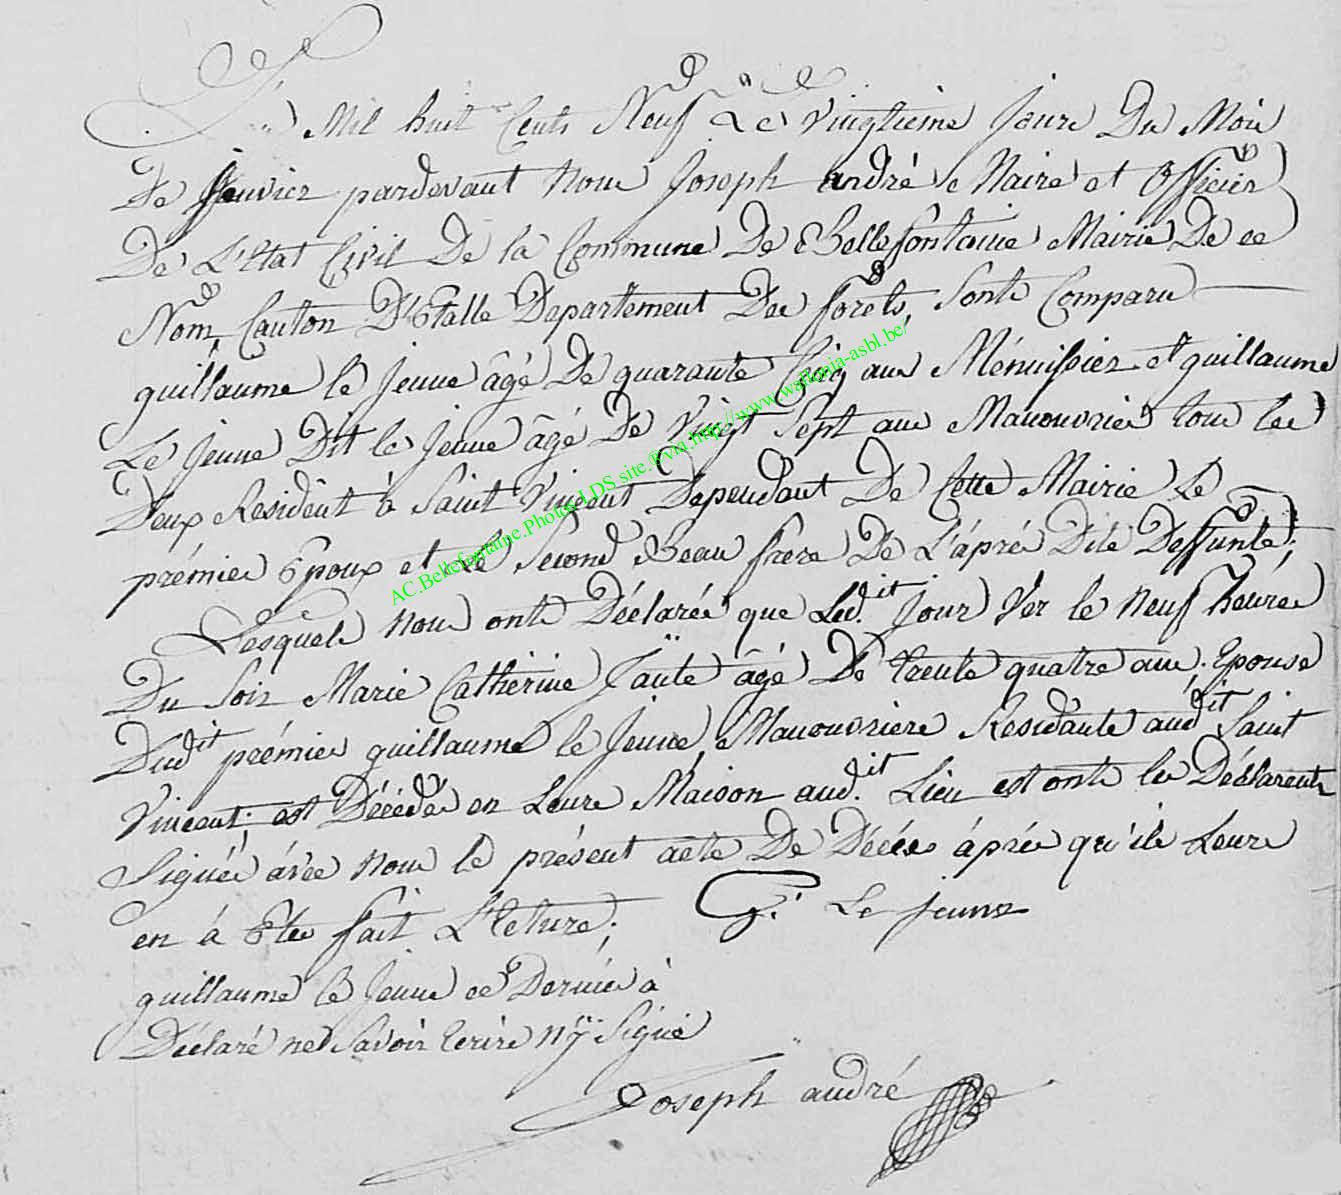 L'an Mil huit Cents Neuf Le Vingtieme Jour Du Mois
De Janvier pardevant Nous Joseph andré Maire et Officier
De L'Etat Civil De la Commune De Bellefontaine Mairie De ce
Nom, Canton D'Etalle Departement Des forêts, Sonts Comparu
guillaume le Jeune âgé De quarante Cinq ans Ménuissier et guillaume
Le Jeune Dit le Jeune âgé De Vingt Sept ans Manouvrier tous les
Deux Resident à Saint Vincent Dependant De Cette Mairie Le
prémier Epoux et Le Second Beau frère De L'aprés Dite Deffunte;
Lesquels Nous onts Déclarée que Led.dit Jour Ver le Neuf heurée
Du Soir Marie Catherine Jauté âgé De trente quatre ans, Epouse
Dud.it prémier guillaume le Jeune Manouvriere Residante aud.it Saint
Vincent; est Décédée en Leure Maison aud.it Lieu est onts les Déclarents
Signée avec Nous le présent acte De Décées áprés qu'ils Leure
en á Etée fait L'Cture; G. Le jeune
guillaume le Jeune ce Dernier à
Déclaré ne Savoir Ecrire ny Signé
Joseph andré
AC.Bellefontaine.Photos LDS site.®via.http://www.wallonia-asbl.be/